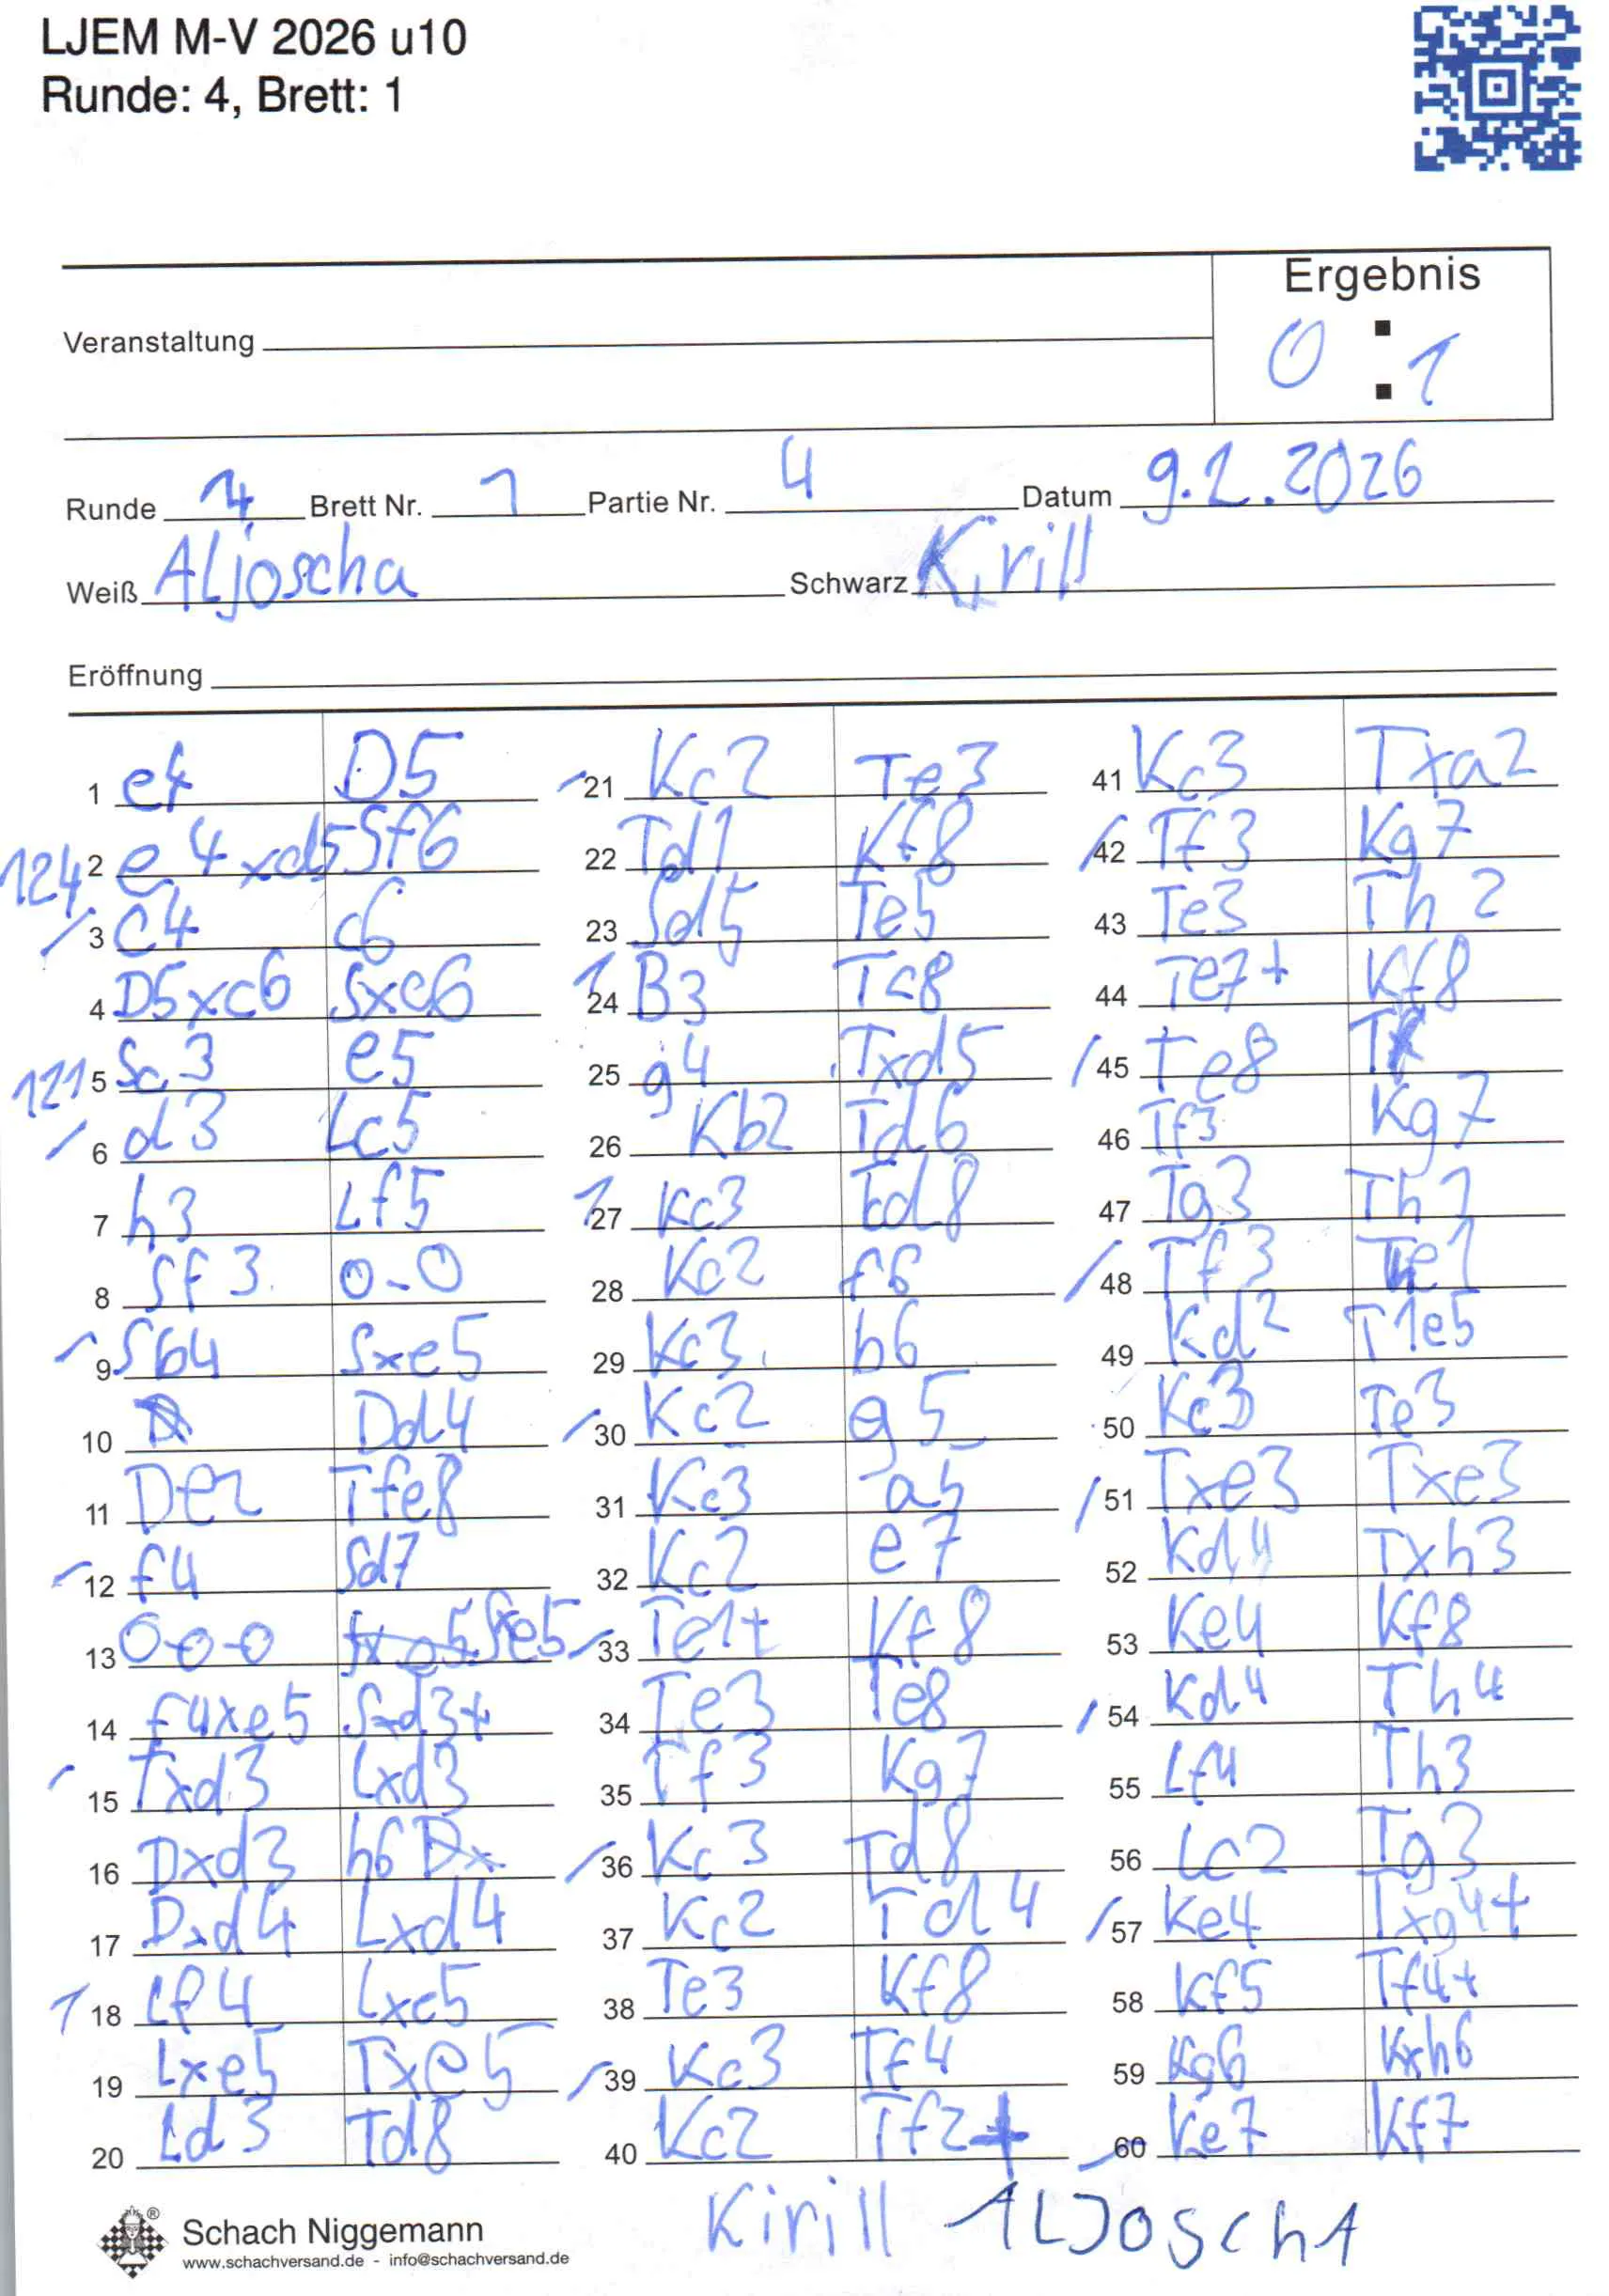 LJEM M-V 2026 u10
Runde: 4, Brett: 1
Ergebnis
Veranstaltung
0 : 1
Runde 4 Brett Nr. 1 Partie Nr. 4 Datum 9.2.2026
Weiß Aljoscha Schwarz Kirill
Eröffnung
1 e4 D5
124 2 e4xd5 Sf6
3 c4 c6
4 D5xc6 Sxc6
121 5 Sc3 e5
6 d3 Lc5
7 h3 Lf5
8 Sf3 0-0
9 Sb4 Sxe5
10 Dd4
11 De2 Tfe8
12 f4 Sd7
13 0-0-0 Sxe5
14 f4xe5 Sxd3+
15 Txd3 Lxd3
16 Dxd3 h6
17 Dxd4 Lxd4
18 Lf4 Lxe5
19 Lxe5 Txe5
20 Ld3 Td8
21 Kc2 Te3
22 Td1 Kf8
23 Sd5 Te5
24 B3 Tc8
25 g4 Txd5
26 Kb2 Td6
27 Kc3 Td8
28 Kc2 f6
29 Kc3 b6
30 Kc2 g5
31 Kc3 a5
32 Kc2 e7
33 Te1+ Kf8
34 Te3 Te8
35 Tf3 Kg7
36 Kc3 Td8
37 Kc2 Td4
38 Te3 Kf8
39 Kc3 Tf4
40 Kc2 Tf2+
41 Kc3 Txa2
42 Tf3 Kg7
43 Te3 Th2
44 Te7+ Kf8
45 Te8
46 Tf3 Kg7
47 Tg3 Th1
48 Tf3 Te1
49 Kd2 T1e5
50 Kc3 Te3
51 Txe3 Txe3
52 Kd4 Txh3
53 Ke4 Kf8
54 Kd4 Th4
55 Lf4 Th3
56 Lc2 Tg3
57 Ke4 Txg4+
58 Kf5 Tf4+
59 Kg6 Kxh6
60 Ke7 Kf7
Kirill ALJOSCHA
Schach Niggemann
www.schachversand.de - info@schachversand.de